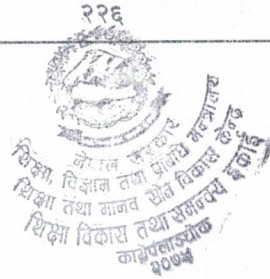 २२६
नेपाल सरकार
शिक्षा, विज्ञान तथा प्रविधि मन्त्रालय
शिक्षा तथा मानव स्रोत विकास केन्द्र
शिक्षा विकास तथा समन्वय इकाई
काभ्रेपलाञ्चोक
२०७५